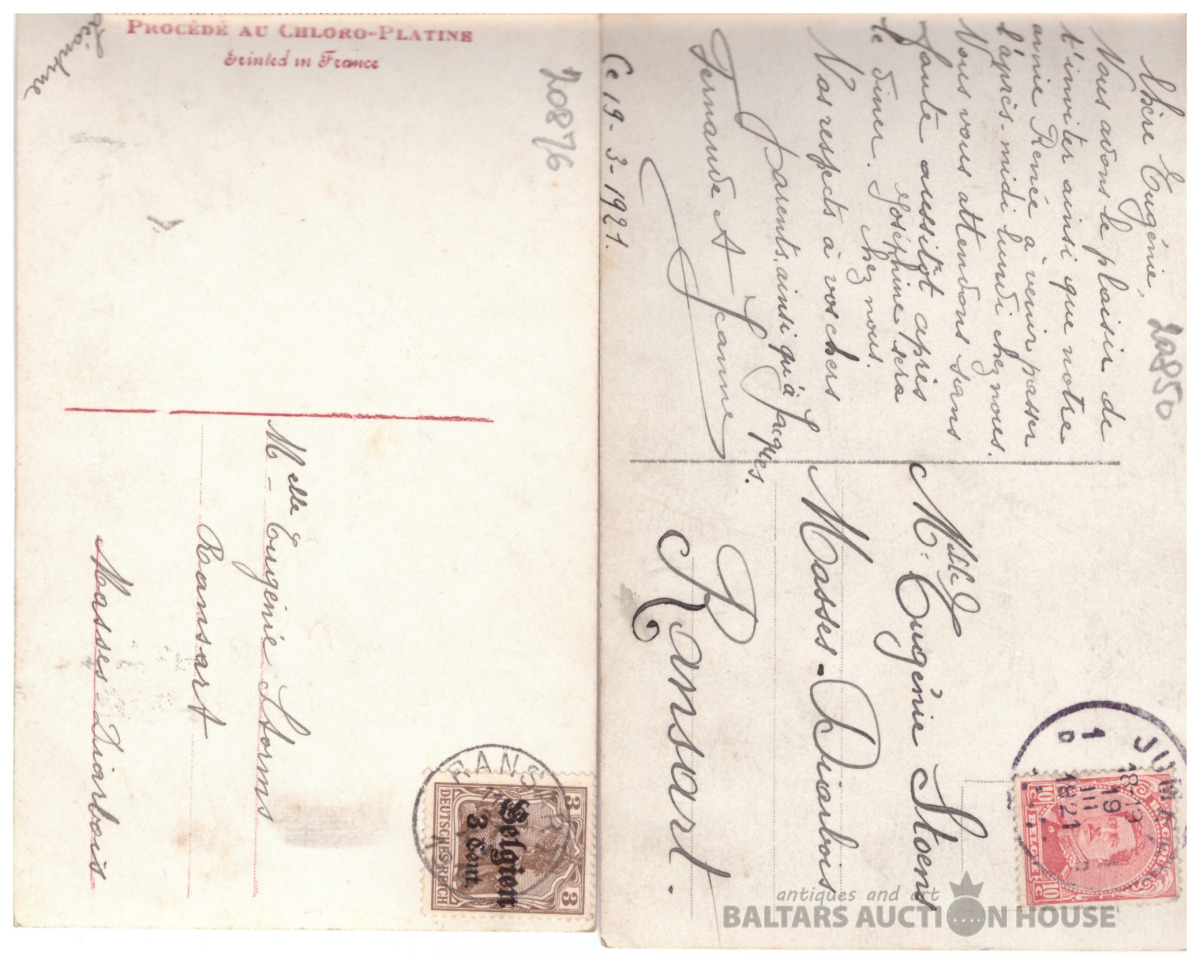 Léontine
PROCÉDÉ AU CHLORO-PLATINE
Printed in France
20876
Melle Eugénie Storms
Ransart
Masses Diarbois
RANSART
DEUTSCHES REICH
3 3
Belgien
3 Cent.
Chère Eugénie,
Nous avons le plaisir de
t'inviter ainsi que notre
amie Renée à venir passer
l'après-midi lundi chez nous.
Nous vous attendons sans
faute aussitôt après
le dîner. Joséphine sera
chez nous.
Vos respects à vos chers
parents, ainsi qu'à Jacques.
Fernande et Jeanne
Ce 19-3-1921.
20850
Melle Eugénie Stoens
Masses-Diarbois
Ransart.
JUM
18-19
19
III
1921
10 10
antiques and art
BALTARS AUCTION HOUSE